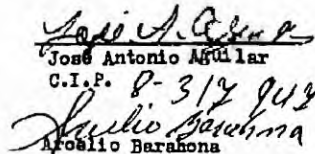 José A. Aguilar
José Antonio Aguilar
C.I.P. 8-317 943
Arcelio Barahona
Arcelio Barahona